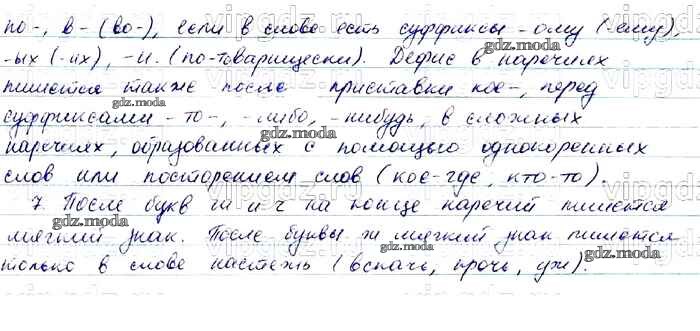 по-, в- (во-), если в слове есть суффиксы -ому (-ему),
-ых (-их), -и. (по-товарищески). Дефис в наречиях
пишется также после приставки кое-, перед
суффиксами -то-, -либо, -нибудь, в сложных
наречиях, образованных с помощью однокоренных
слов или повторением слов (кое-где, кто-то).
7. После букв ш и ч на конце наречий пишется
мягкий знак. После буквы ж мягкий знак пишется
только в слове настежь (вскачь, прочь, уж).